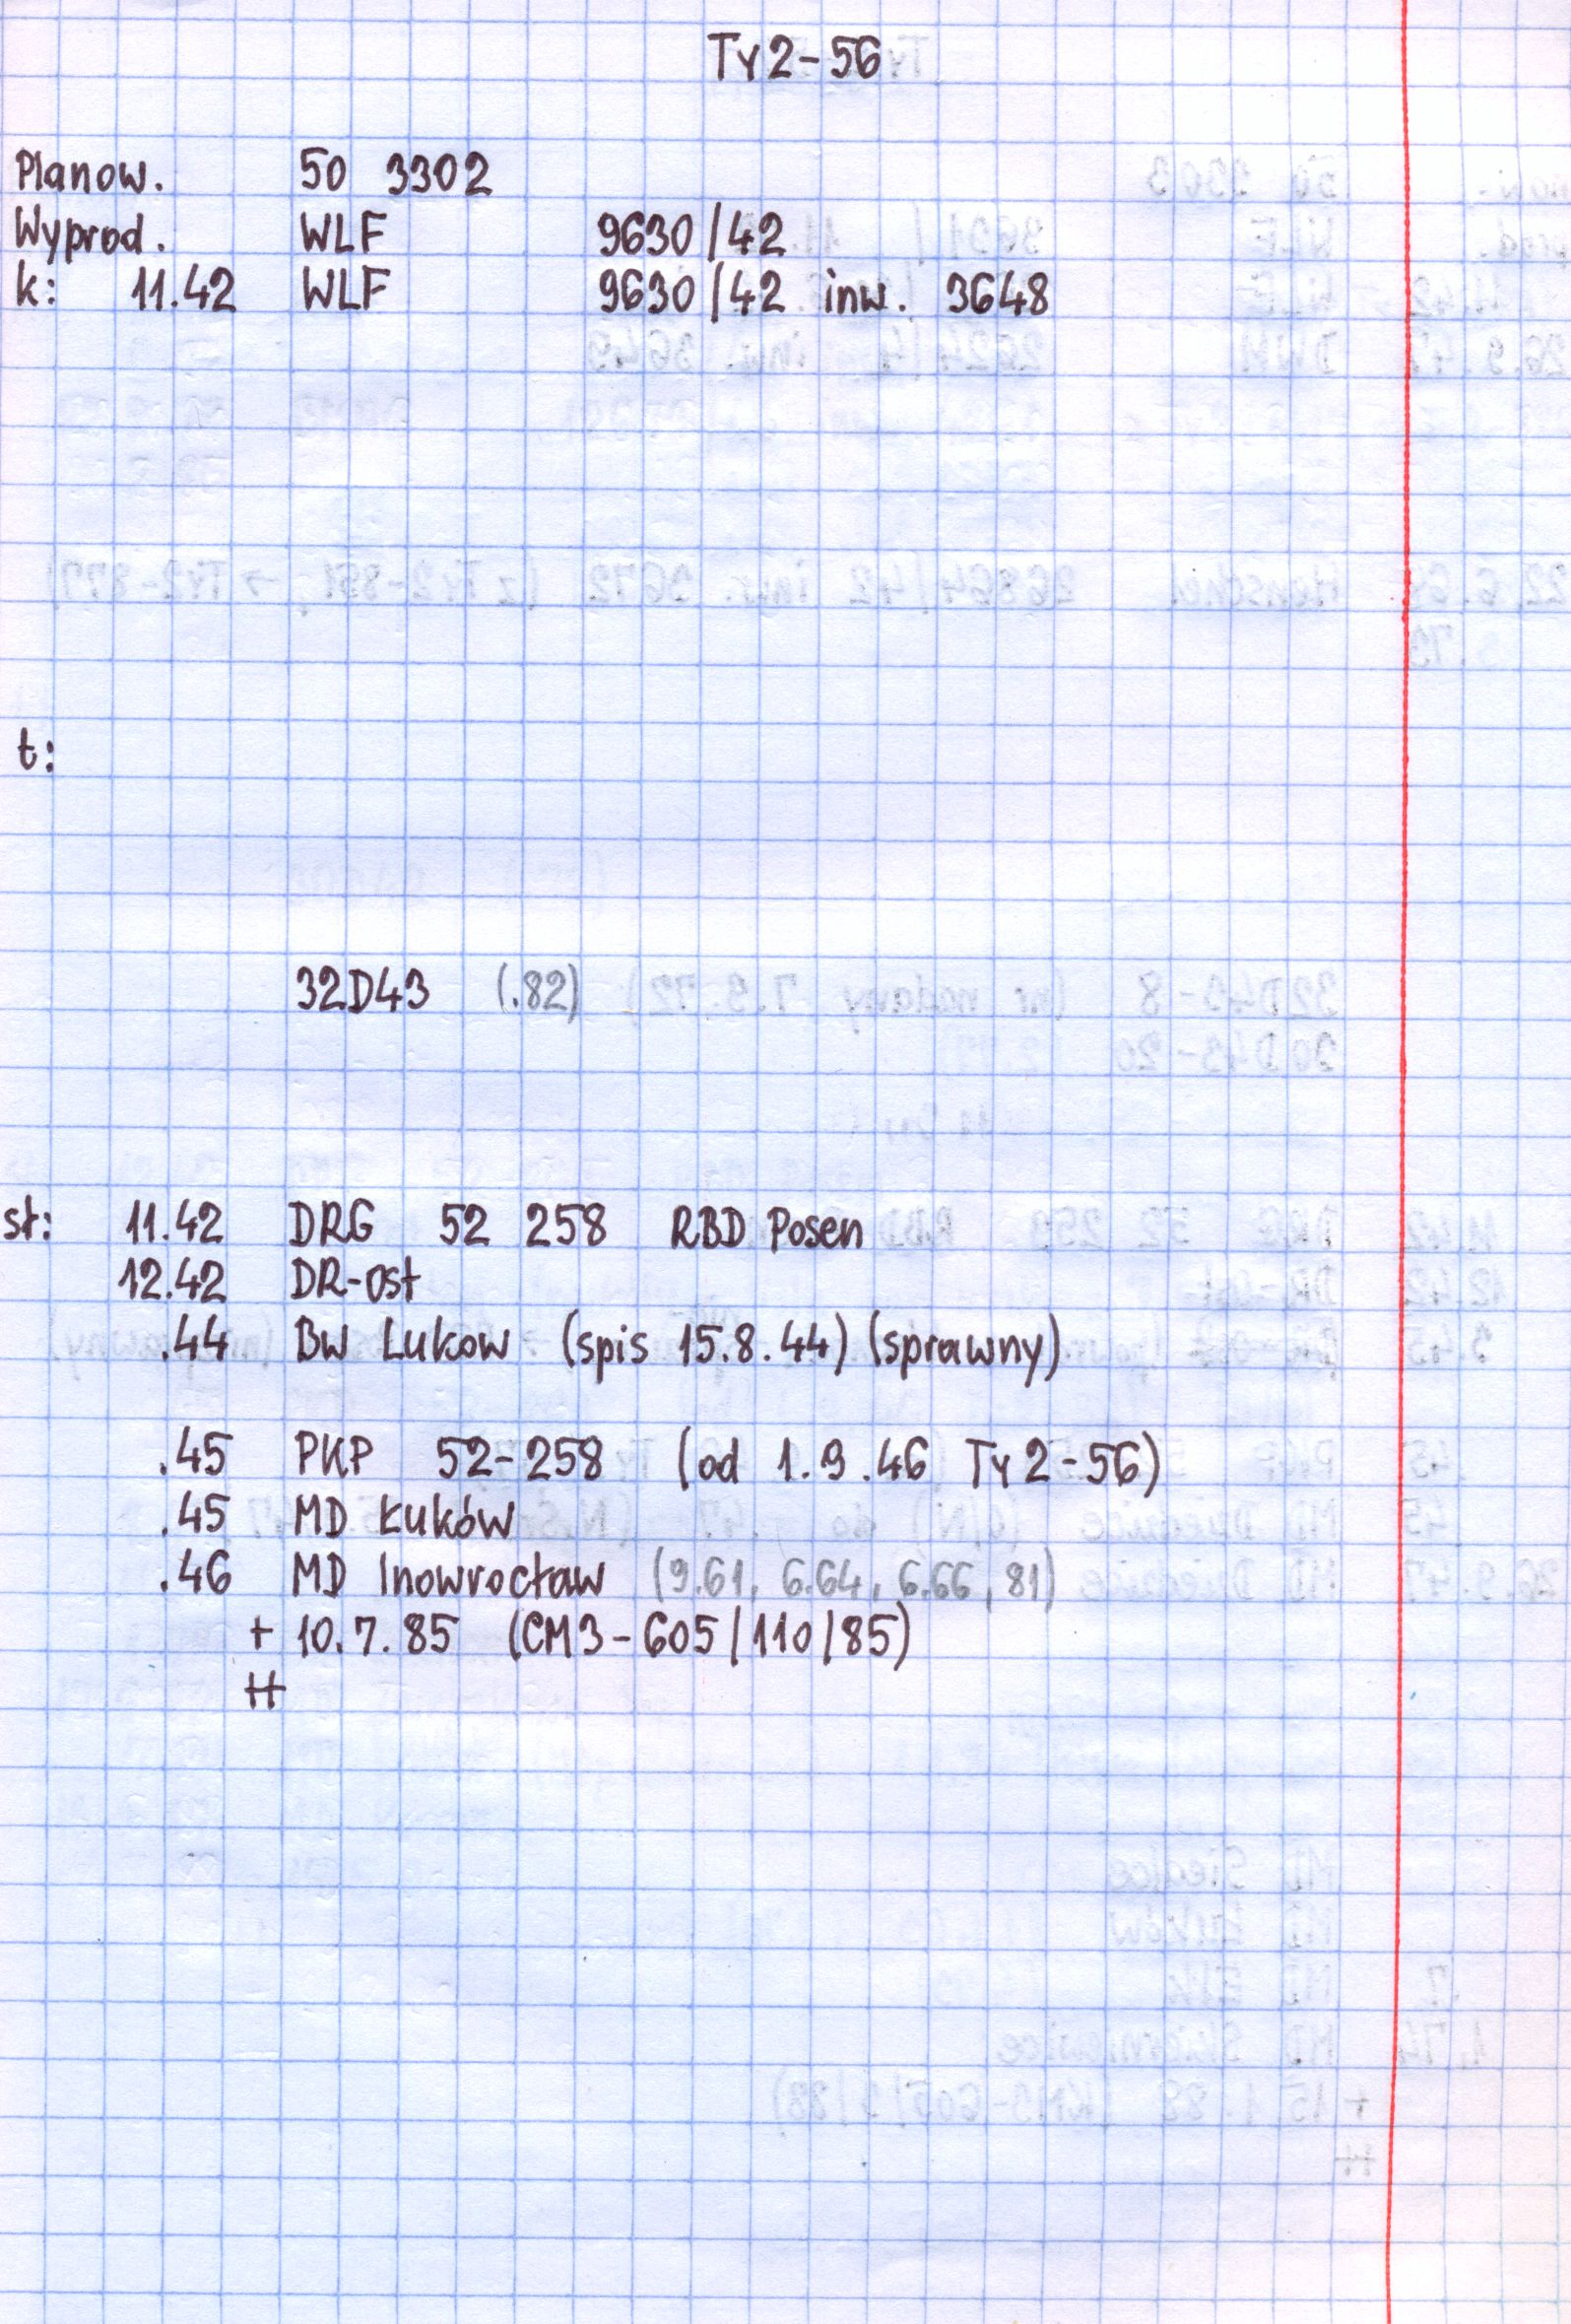 Ty2-56
Planow. 50 3302
Wyprod. WLF 9630/42
k: 11.42 WLF 9630/42 inw. 3648
t:
32D43 (.82)
st: 11.42 DRG 52 258 RBD Posen
12.42 DR-Ost
.44 BW Lukow (spis 15.8.44) (sprawny)
.45 PKP 52-258 (od 1.9.46 Ty2-56)
.45 MD Łuków
.46 MD Inowrocław (9.61, 6.64, 6.66, 81)
+ 10.7.85 (CM3-605/110/85)
++